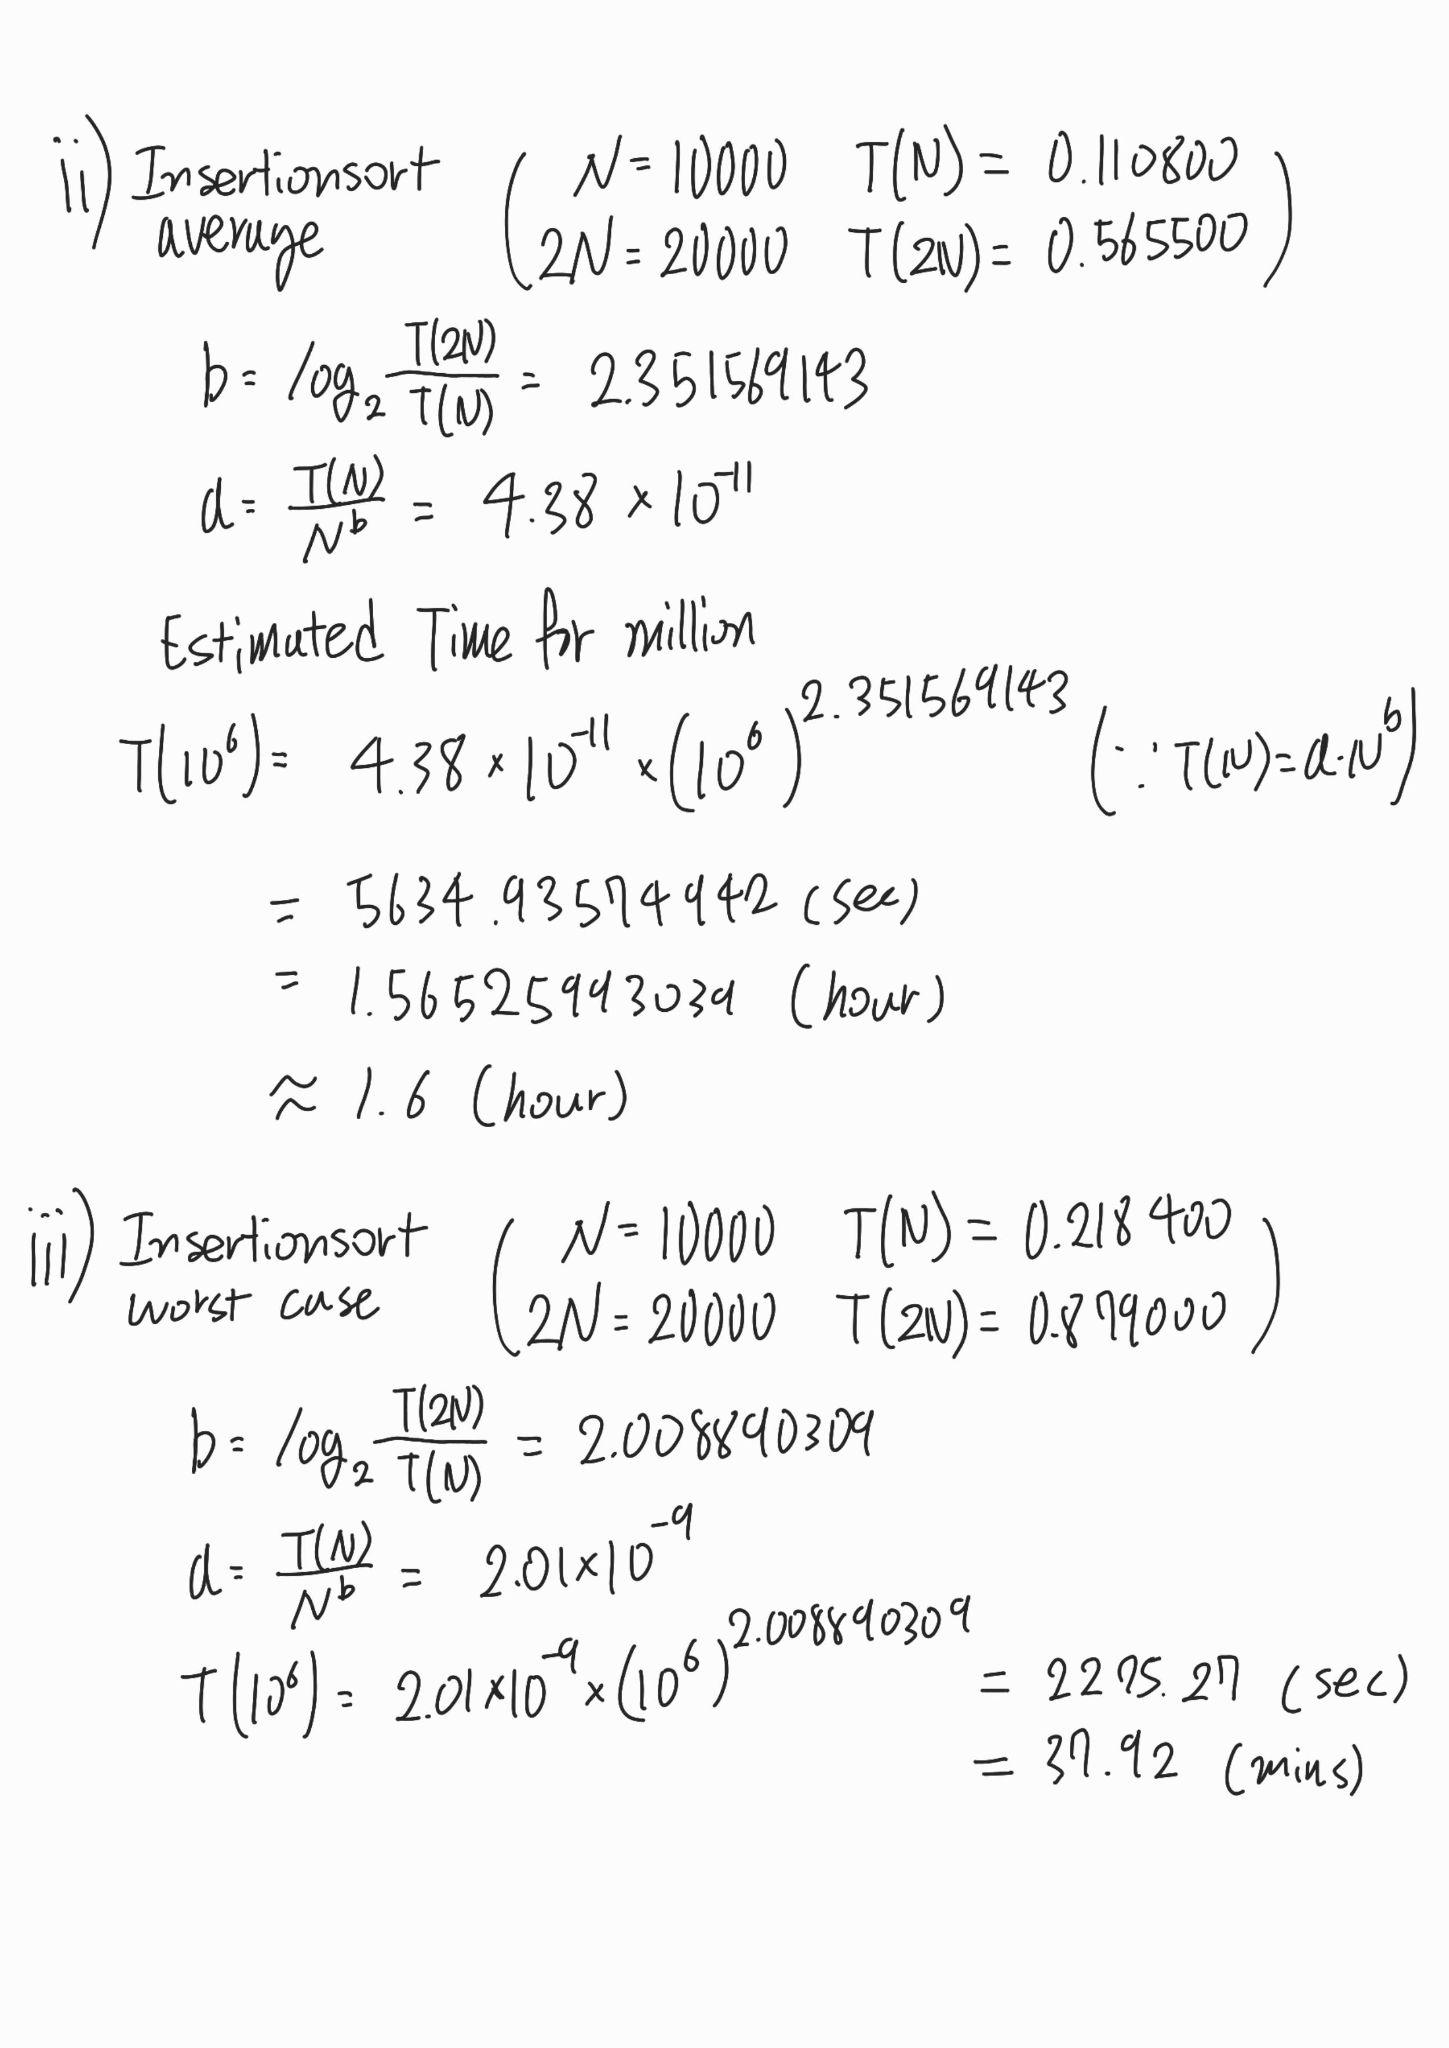 ii) Insertionsort average ( N = 10000 T(N) = 0.110800
2N = 20000 T(2N) = 0.565500 )
b = log₂ T(2N)/T(N) = 2.351569143
a = T(N)/N^b = 4.38 × 10^-11
Estimated Time for million
T(10^6) = 4.38 × 10^-11 × (10^6)^2.351569143 (∵ T(N) = a·N^b)
= 5634.93574942 (sec)
= 1.56525993039 (hour)
≈ 1.6 (hour)
iii) Insertionsort worst case ( N = 10000 T(N) = 0.218400
2N = 20000 T(2N) = 0.879000 )
b = log₂ T(2N)/T(N) = 2.008890309
a = T(N)/N^b = 2.01×10^-9
T(10^6) = 2.01×10^-9 × (10^6)^2.008890309 = 2275.27 (sec)
= 37.92 (mins)